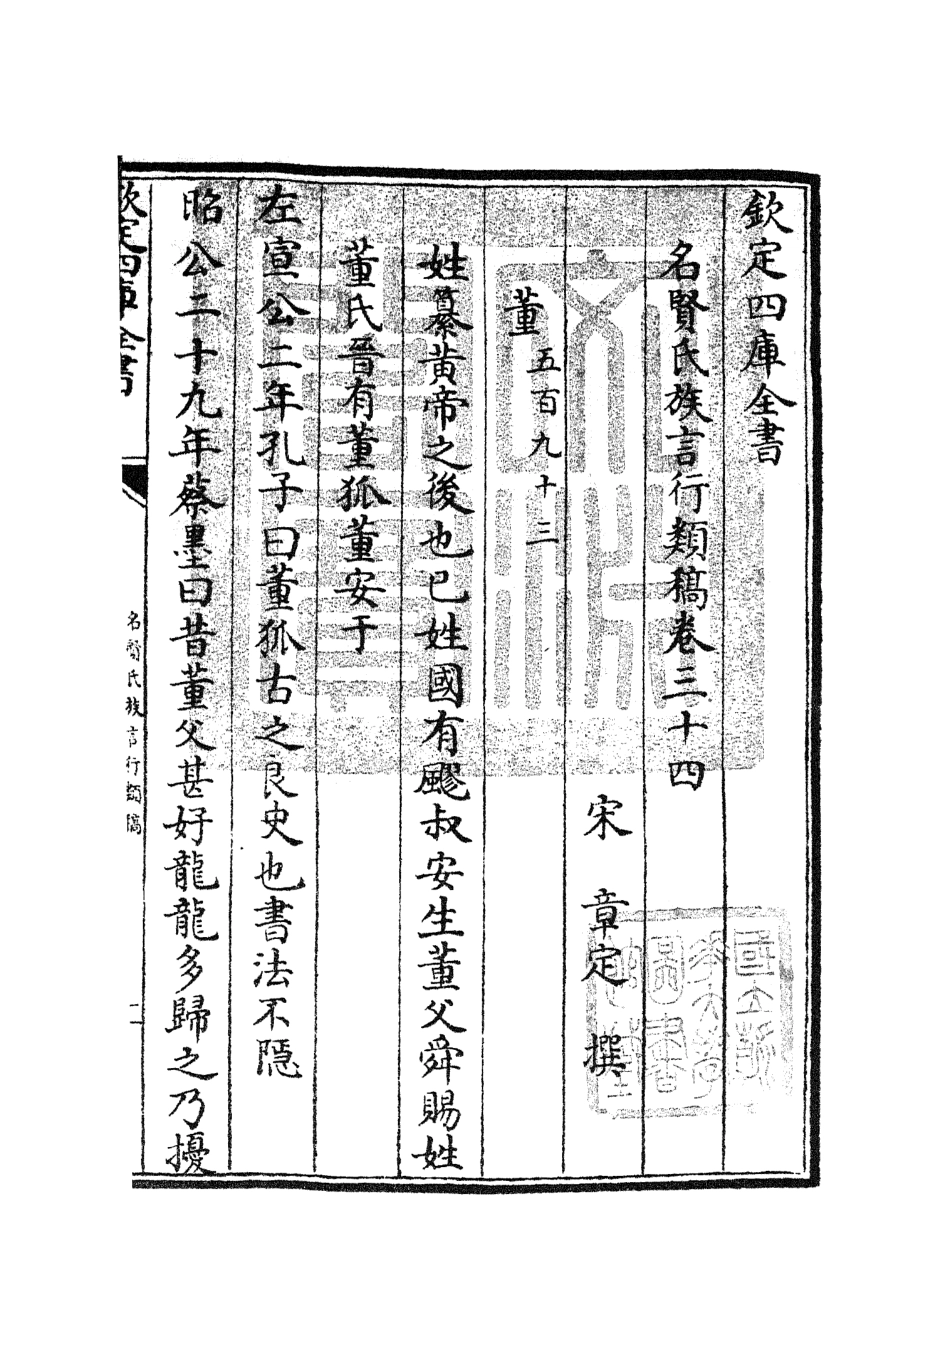 欽定四庫全書
名賢氏族言行類稿卷三十四
宋 章定 撰
董 五百九十三
姓纂黃帝之後也已姓國有飂叔安生董父舜賜姓
董氏晉有董狐董安于
左宣公二年孔子曰董狐古之良史也書法不隠
昭公二十九年蔡墨曰昔董父甚好龍龍多歸之乃擾
欽定四庫全書
名賢氏族言行類稿